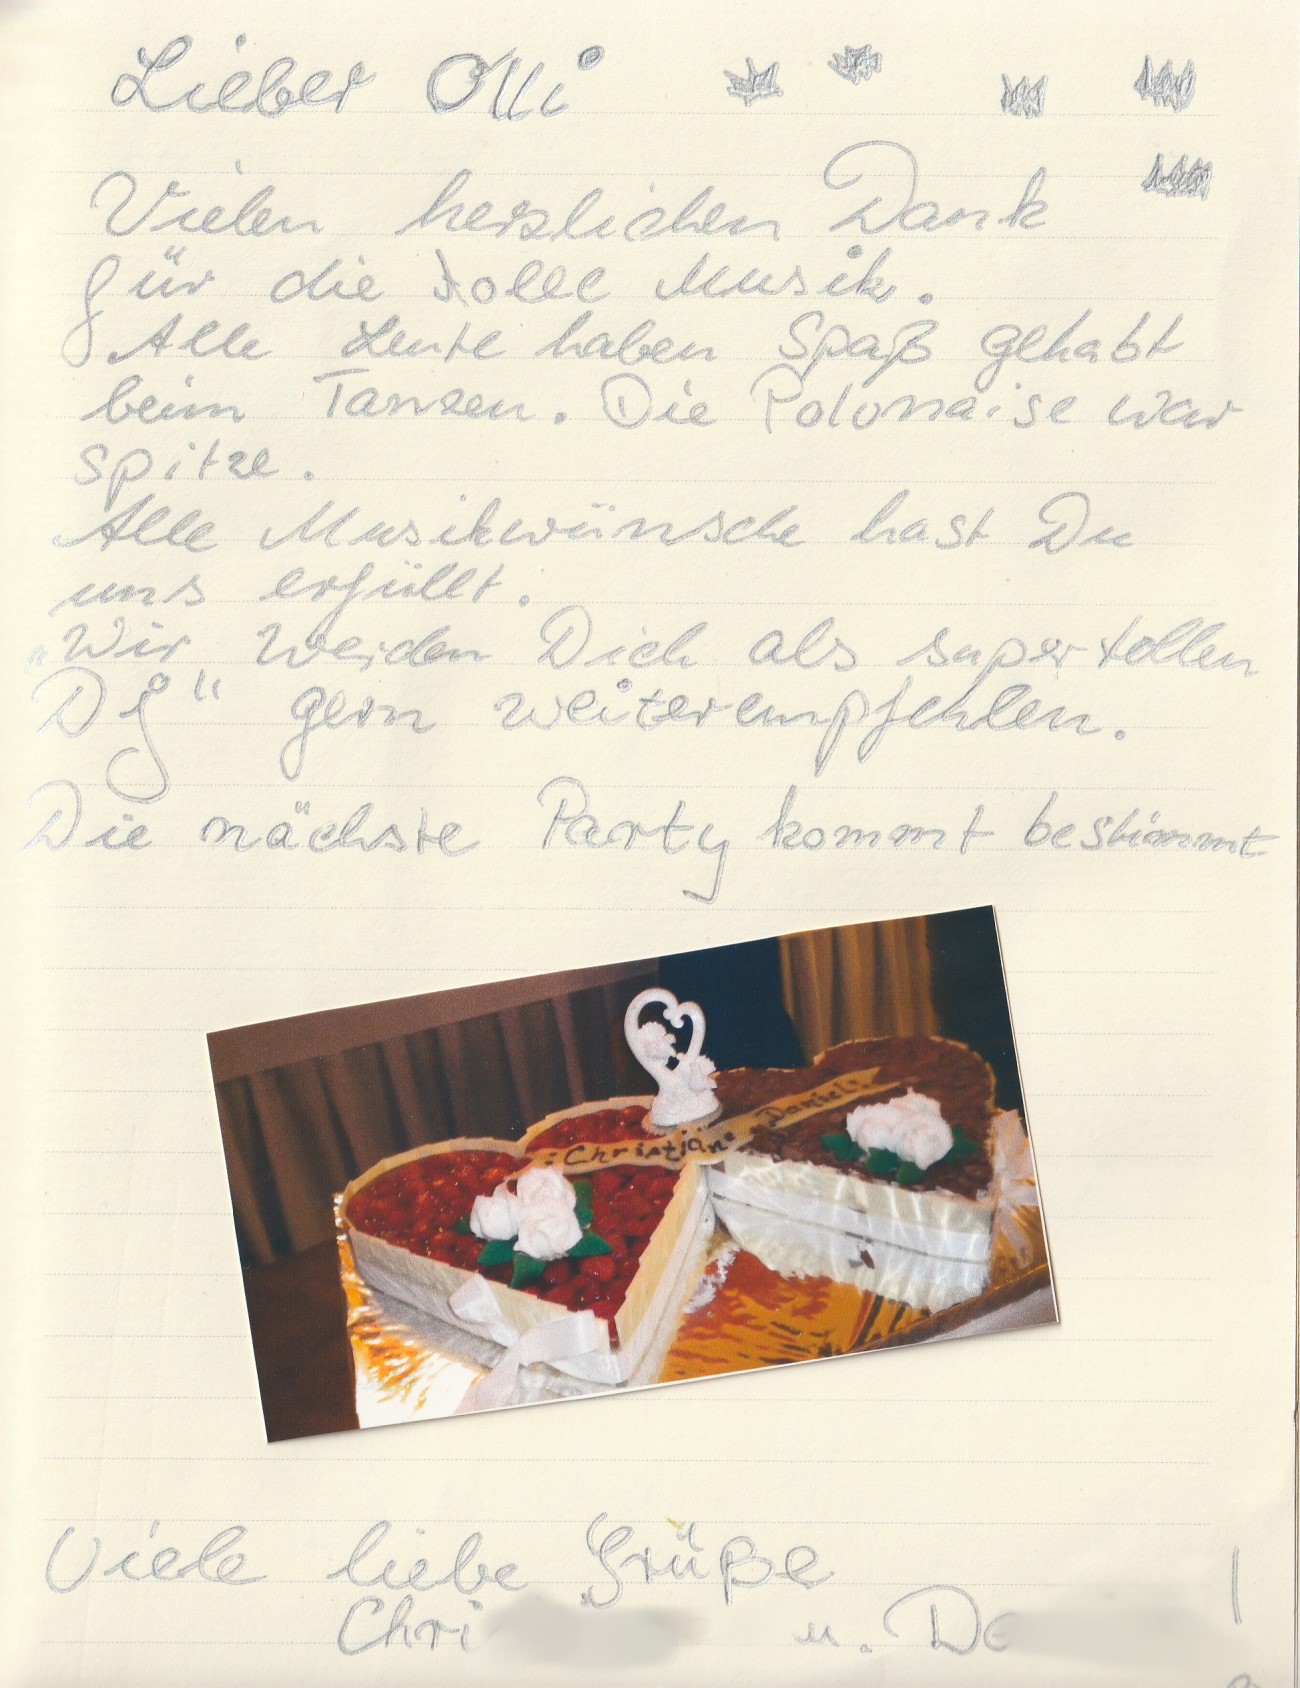 Lieber Olli
Vielen herzlichen Dank
für die tolle Musik.
Alle Leute haben Spaß gehabt
beim Tanzen. Die Polonaise war
spitze.
Alle Musikwünsche hast Du
uns erfüllt.
„Wir werden Dich als supertollen
Dj“ gern weiterempfehlen.
Die nächste Party kommt bestimmt
Christiane u. Daniel
Viele liebe Grüße
Chri u. Da